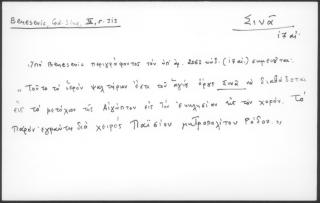 Benesevic, Cod. Sin., III, σ. 212
Σινᾶ
17 αἰ.
Ὑπὸ Benesevic περιγράφοντος τὸν ὑπ' ἀρ. 2062 κώδ. (17 αἰ) σημειοῦται:
"Τοῦτο τὸ ἱερὸν ψαλτήριον ἔστι τοῦ ἁγίου ὄρους Σινᾶ νὰ διαβάζεται
εἰς τὸ μετόχιον τῆς Αἰγύπτου εἰς τὴν ἐκκλησίαν εἰς τὸν χορόν. Τὸ
παρὸν ἐγράφη διὰ χειρὸς Παϊσίου μητροπολίτου Ρόδου."